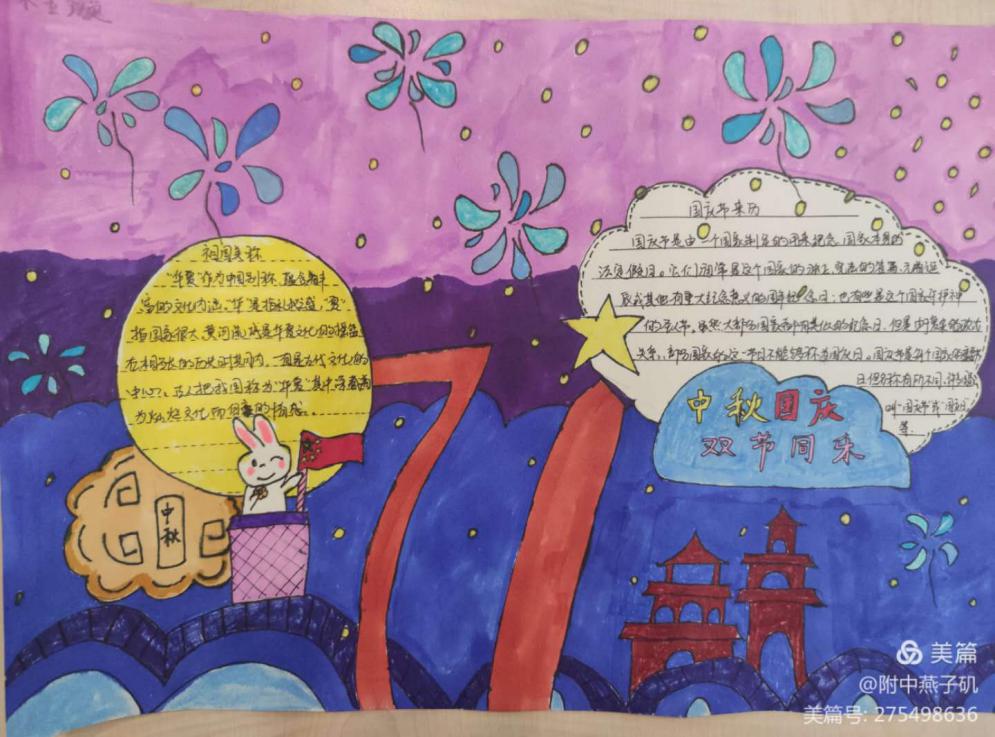 祖国美称
"华夏"作为中国别称,蕴含着丰
富的文化内涵,"华"是指礼仪盛,"夏"
指国家很大,黄河流域是华夏文化的摇篮
在相当长的历史时期内,一直是古代文化的
中心,古人把我国称为"华夏"其中含着
为灿烂文化而自豪的情感。
中秋
国庆节来历
国庆节是由一个国家制定的用来纪念国家本身的
法定假日。它们通常是这个国家的独立、宪法的签署、元首诞
辰或其他有重大纪念意义的周年纪念日;也有些是这个国家守护神
的圣人节。虽然大部分国家都有类似的纪念日,但是由于复杂的政治
关系,部分国家的这一节日不能够称为国庆日。
日但名称有所不同,
叫"国庆节"或"国庆日"
等。
中秋国庆
双节同来
美篇
@附中燕子矶
美篇号: 275498636